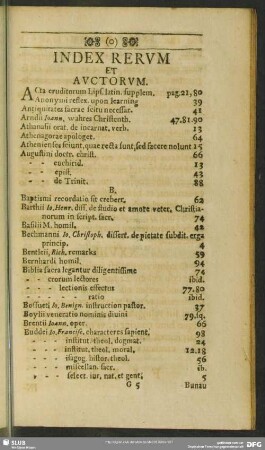 (0)
INDEX RERVM
ET
AVCTORVM.
ACta eruditorum Lips. latin. supplem. pag. 21, 80
Anonymi reflex. upon learning 39
Antiquitates sacrae scitu necessar. 41
Arndii Ioann. wahres Christenth. 47.81.90
Athanasii orat. de incarnat. verb. 13
Athenagorae apologet. 64
Athenienses sciunt, quae recta sunt, sed facere nolunt 15
Augustini doctr. christ. 66
- - enchirid. 13
- - epist. 43
- - de Trinit. 88
B.
Baptismi recordatio sit crebert. 62
Barthii Io. Henr. diss. de studio et amore veter. Christia-
norum in script. sacr. 74
Basilii M. homil. 42
Bechmanni Io. Christoph. dissert. de pietate subdit. erga
princip. 4
Bentleii, Rich. remarks 59
Bernhardi homil. 94
Biblia sacra legantur diligentissime 74
- - eorum lectores ibid.
- - lectionis effectus 77.80
- - ratio ibid.
Bossueti Io. Benign. instruction pastor. 37
Boylii veneratio nominis diuini 79. sq.
Brentii Ioann. oper. 66
Buddei Io. Francisc. characteres sapient. 98
- - institut. theol. dogmat. 24
- - institut. theol. moral. 12.18
- - isagog. histor. theol. 56
- - miscellan. sacr. ib.
- - select. iur. nat. et gent. 5
G 5 Bunau
SLUB